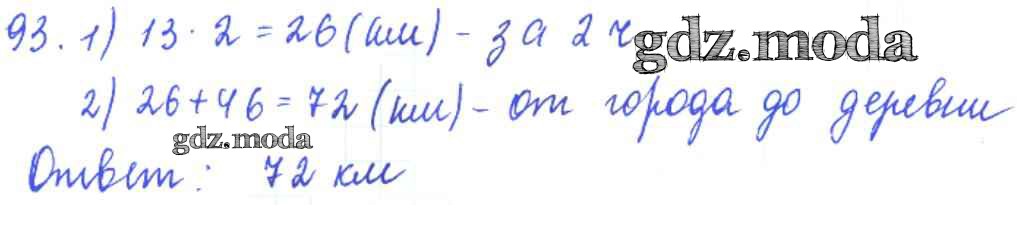 93. 1) 13 · 2 = 26 (км) - за 2 ч gdz.moda
2) 26 + 46 = 72 (км) - от города до деревни
gdz.moda
Ответ: 72 км